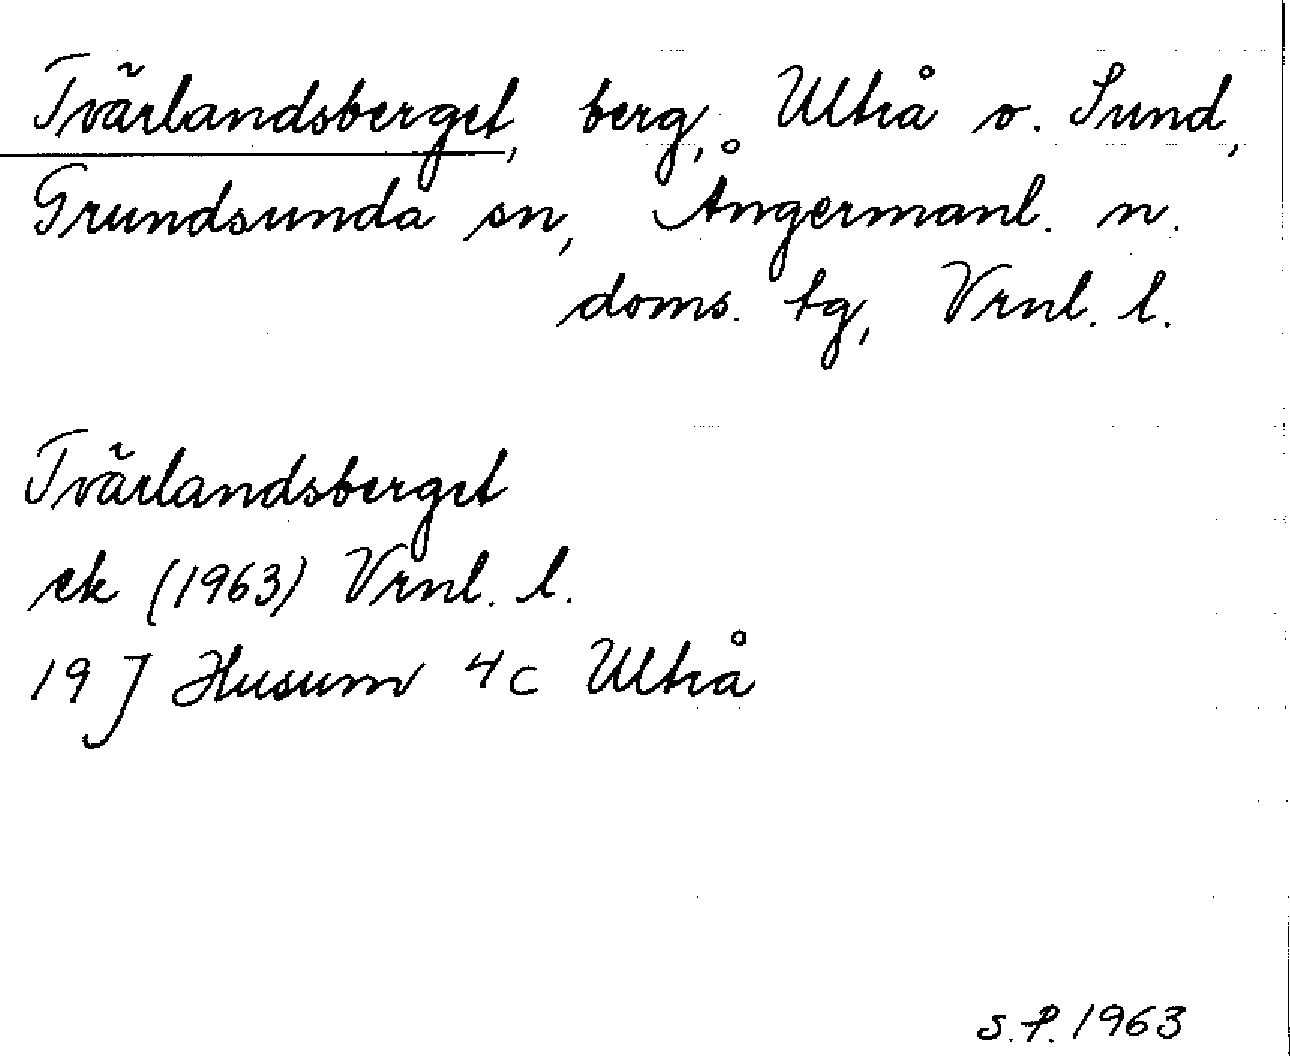 Tvärlandsberget, berg, Ultrå o. Sund,
Grundsunda sn, Ångermanl. n.
doms. tg, Vrnl. l.
Tvärlandsberget
ek (1963) Vrnl. l.
19 J Husum 4c Ultrå
S.P. 1963